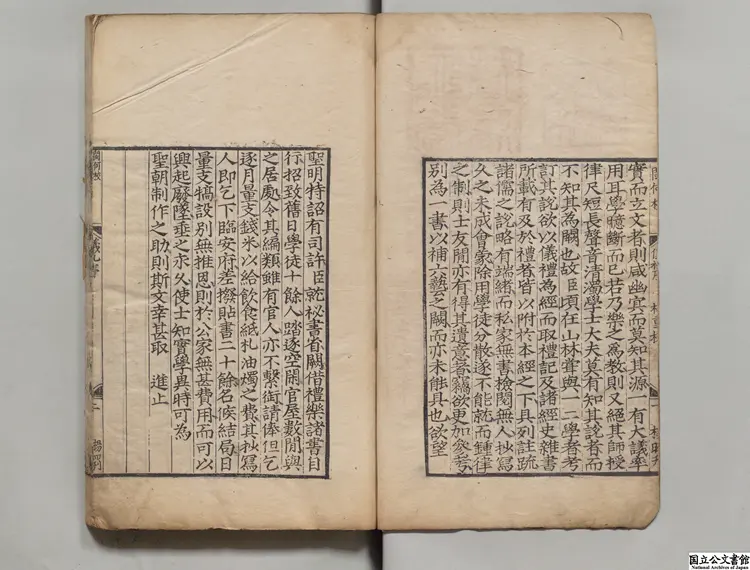 實而立文者則咸幽冥而莫知其源一有大議率
用耳學臆斷而已若乃樂之爲教則又絕其師授
律尺短長聲音清濁學士大夫莫有知其說者而
不知其爲闕也故臣頃在山林甞與一二學者考
訂其說欲以儀禮爲經而取禮記及諸經史雜書
所載有及於禮者皆以附於本經之下具列註疏
諸儒之說略有端緒而私家無書檢閱無人抄寫
久之未成會蒙除用學徒分散遂不能就而鍾律
之制則士友間亦有得其遺意者竊欲更加參考
別爲一書以補六藝之闕而亦未能具也欲望
聖明特詔有司許臣就祕書省關借禮樂諸書自
行招致舊日學徒十餘人踏逐空閑官屋數間與
之居處令其編類雖有官人亦不繫銜請俸但乞
逐月量支錢米以給飲食紙札油燭之費其抄寫
人即乞下臨安府差撥貼書二十餘名候結局日
量支犒設別無推恩則於公家無甚費用而可以
興起廢墜垂之永久使士知實學異時可爲
聖朝制作之助則斯文幸甚取 進止
国立公文書館
National Archives of Japan